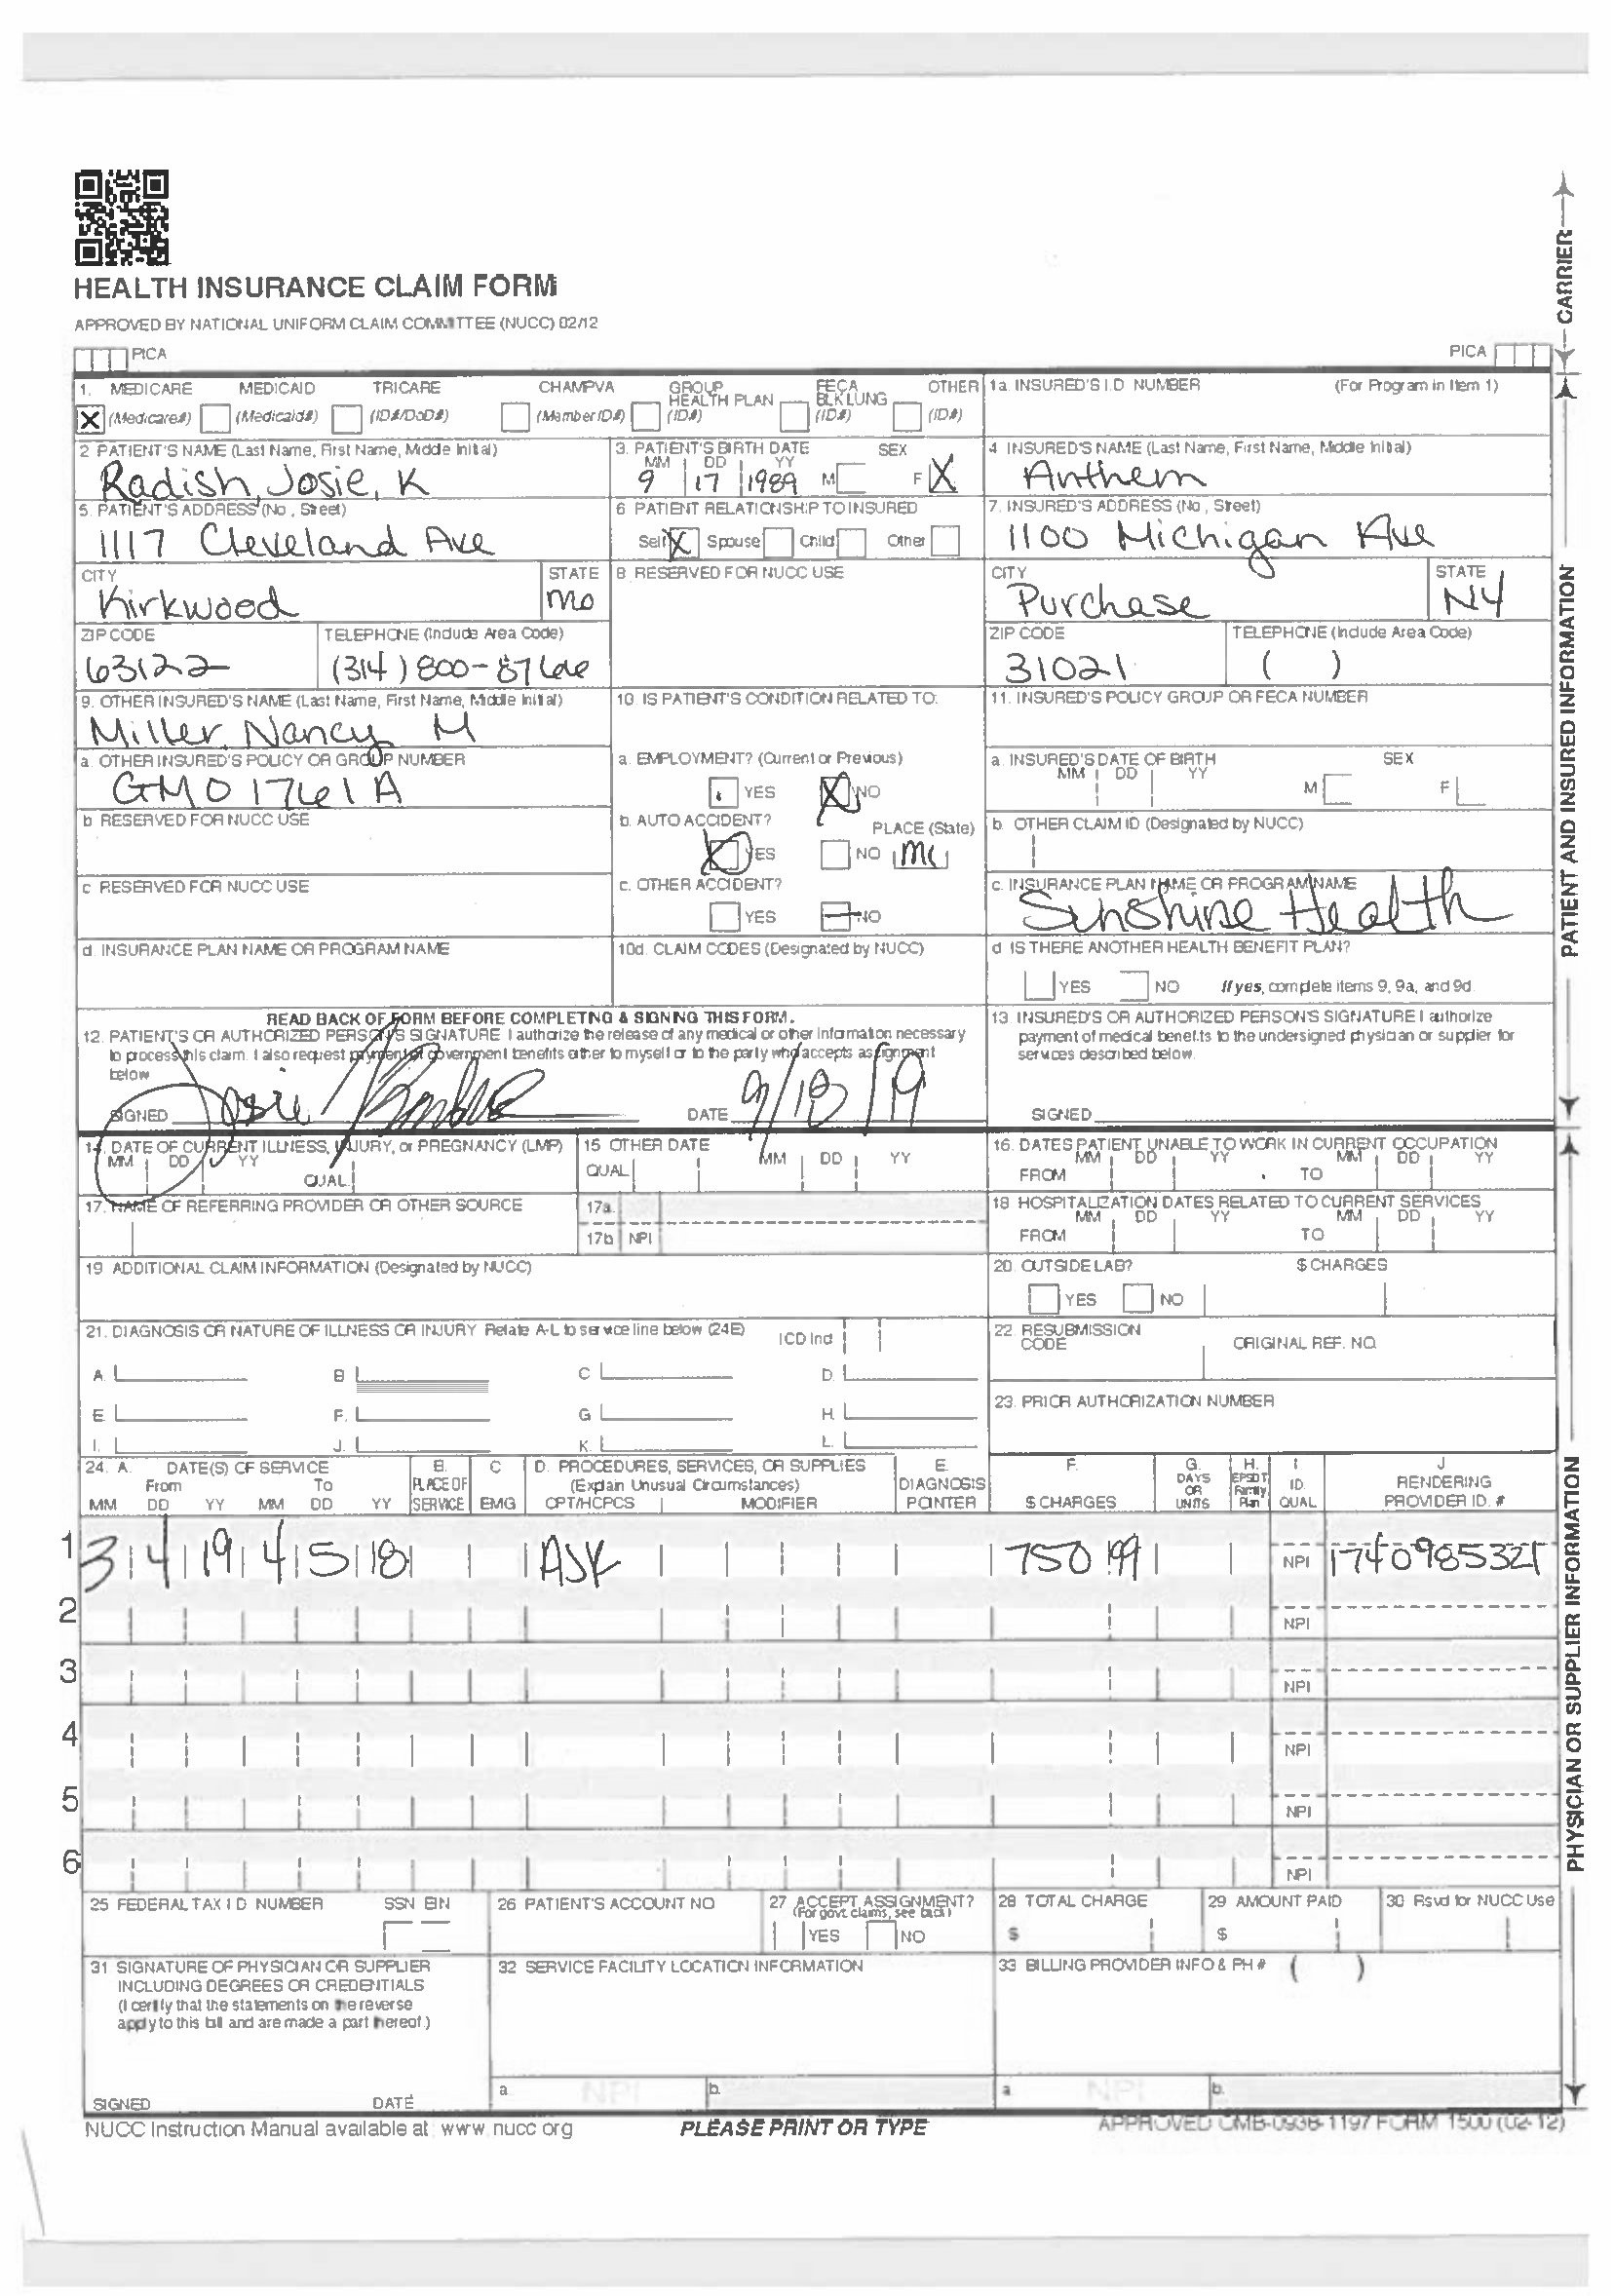 HEALTH INSURANCE CLAIM FORM
APPROVED BY NATIONAL UNIFORM CLAIM COMMITTEE (NUCC) 02/12
PICA
PICA
CARRIER
1. MEDICARE MEDICAID TRICARE CHAMPVA GROUP HEALTH PLAN FECA BLK LUNG OTHER
X (Medicare#) (Medicaid#) (ID#/DoD#) (Member ID#) (ID#) (ID#) (ID#)
1a. INSURED'S I.D. NUMBER (For Program in Item 1)
2 PATIENT'S NAME (Last Name, First Name, Middle Initial)
Radish, Josie, K
3. PATIENT'S BIRTH DATE SEX
MM DD YY
9 17 1989 M F X
4 INSURED'S NAME (Last Name, First Name, Middle Initial)
Anthem
5. PATIENT'S ADDRESS (No, Street)
1117 Cleveland Ave
6 PATIENT RELATIONSHIP TO INSURED
Self X Spouse Child Other
7. INSURED'S ADDRESS (No, Street)
1100 Michigan Ave
CITY
Kirkwood
STATE
MO
8. RESERVED FOR NUCC USE
CITY
Purchase
STATE
NY
ZIP CODE
63122
TELEPHONE (Include Area Code)
(314) 800-8766
ZIP CODE
31021
TELEPHONE (Include Area Code)
( )
9. OTHER INSURED'S NAME (Last Name, First Name, Middle Initial)
Miller, Nancy M
10. IS PATIENT'S CONDITION RELATED TO:
11. INSURED'S POLICY GROUP OR FECA NUMBER
a. OTHER INSURED'S POLICY OR GROUP NUMBER
GMO1761A
a. EMPLOYMENT? (Current or Previous)
YES X NO
a. INSURED'S DATE OF BIRTH SEX
MM DD YY M F
b RESERVED FOR NUCC USE
b. AUTO ACCIDENT? PLACE (State)
X YES NO
b. OTHER CLAIM ID (Designated by NUCC)
c RESERVED FOR NUCC USE
c. OTHER ACCIDENT?
YES NO
c. INSURANCE PLAN NAME OR PROGRAM NAME
Sunshine Health
d. INSURANCE PLAN NAME OR PROGRAM NAME
10d. CLAIM CODES (Designated by NUCC)
d IS THERE ANOTHER HEALTH BENEFIT PLAN?
YES NO If yes, complete items 9, 9a, and 9d
PATIENT AND INSURED INFORMATION
READ BACK OF FORM BEFORE COMPLETING & SIGNING THIS FORM.
12. PATIENT'S OR AUTHORIZED PERSON'S SIGNATURE I authorize the release of any medical or other information necessary
to process this claim. I also request payment of government benefits either to myself or to the party who accepts assignment
below
SIGNED Josie DATE 9/18/19
13 INSURED'S OR AUTHORIZED PERSON'S SIGNATURE I authorize
payment of medical benefits to the undersigned physician or supplier for
services described below.
SIGNED
14. DATE OF CURRENT ILLNESS, INJURY, or PREGNANCY (LMP)
MM DD YY QUAL.
15 OTHER DATE
QUAL MM DD YY
16. DATES PATIENT UNABLE TO WORK IN CURRENT OCCUPATION
MM DD YY MM DD YY
FROM TO
17. NAME OF REFERRING PROVIDER OR OTHER SOURCE
17a.
17b NPI
18 HOSPITALIZATION DATES RELATED TO CURRENT SERVICES
MM DD YY MM DD YY
FROM TO
19 ADDITIONAL CLAIM INFORMATION (Designated by NUCC)
20. OUTSIDE LAB? $ CHARGES
YES NO
21. DIAGNOSIS OR NATURE OF ILLNESS OR INJURY Relate A-L to service line below (24E) ICD Ind
A. B C D.
E. F. G H.
I. J. K. L.
22. RESUBMISSION CODE ORIGINAL REF. NO.
23. PRIOR AUTHORIZATION NUMBER
24. A. DATE(S) OF SERVICE B. C D. PROCEDURES, SERVICES, OR SUPPLIES E. F. G. H. I. J
From To PLACE OF (Explain Unusual Circumstances) DIAGNOSIS DAYS OR EPSDT Family ID. RENDERING
MM DD YY MM DD YY SERVICE EMG CPT/HCPCS MODIFIER POINTER $ CHARGES UNITS Plan QUAL PROVIDER ID. #
1 3 4 19 4 5 18 ASK 750 99 NPI 1740985321
2 NPI
3 NPI
4 NPI
5 NPI
6 NPI
25 FEDERAL TAX I D NUMBER SSN EIN
26 PATIENT'S ACCOUNT NO
27 ACCEPT ASSIGNMENT?
(For govt. claims, see back)
YES NO
28 TOTAL CHARGE
$
29 AMOUNT PAID
$
30 Rsvd for NUCC Use
31 SIGNATURE OF PHYSICIAN OR SUPPLIER
INCLUDING DEGREES OR CREDENTIALS
(I certify that the statements on the reverse
apply to this bill and are made a part thereof.)
SIGNED DATE
32 SERVICE FACILITY LOCATION INFORMATION
a. NPI b.
33 BILLING PROVIDER INFO & PH # ( )
a. NPI b.
PHYSICIAN OR SUPPLIER INFORMATION
NUCC Instruction Manual available at: www.nucc.org
PLEASE PRINT OR TYPE
APPROVED OMB-0938-1197 FORM 1500 (02-12)